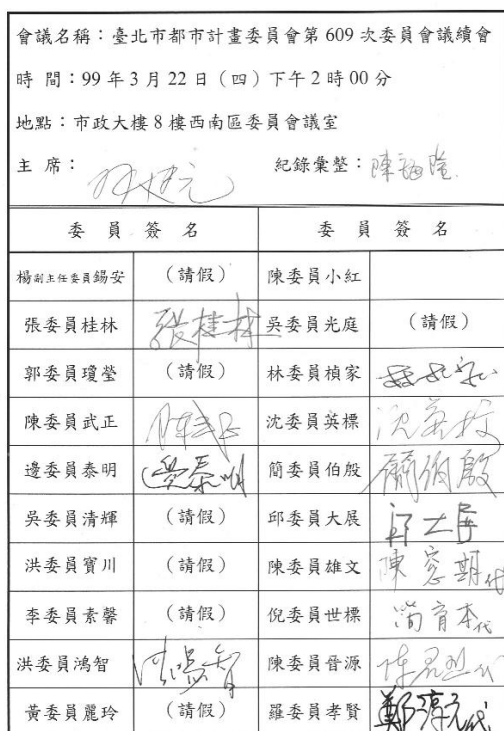 會議名稱：臺北市都市計畫委員會第 609 次委員會議續會
時 間：99 年 3 月 22 日（四）下午 2 時 00 分
地點：市政大樓 8 樓西南區委員會議室
主 席： 紀錄彙整：陳福隆
委 員 簽 名 委 員 簽 名
楊副主任委員錫安 （請假） 陳委員小紅
張委員桂林 張桂林 吳委員光庭 （請假）
郭委員瓊瑩 （請假） 林委員楨家 林楨家
陳委員武正 陳武正 沈委員英標 沈英標
邊委員泰明 邊泰明 簡委員伯殷 簡伯殷
吳委員清輝 （請假） 邱委員大展 邱大展
洪委員寶川 （請假） 陳委員雄文 陳 期代
李委員素馨 （請假） 倪委員世標 簡育本代
洪委員鴻智 洪鴻智 陳委員晉源 代
黃委員麗玲 （請假） 羅委員孝賢 鄭淳元代